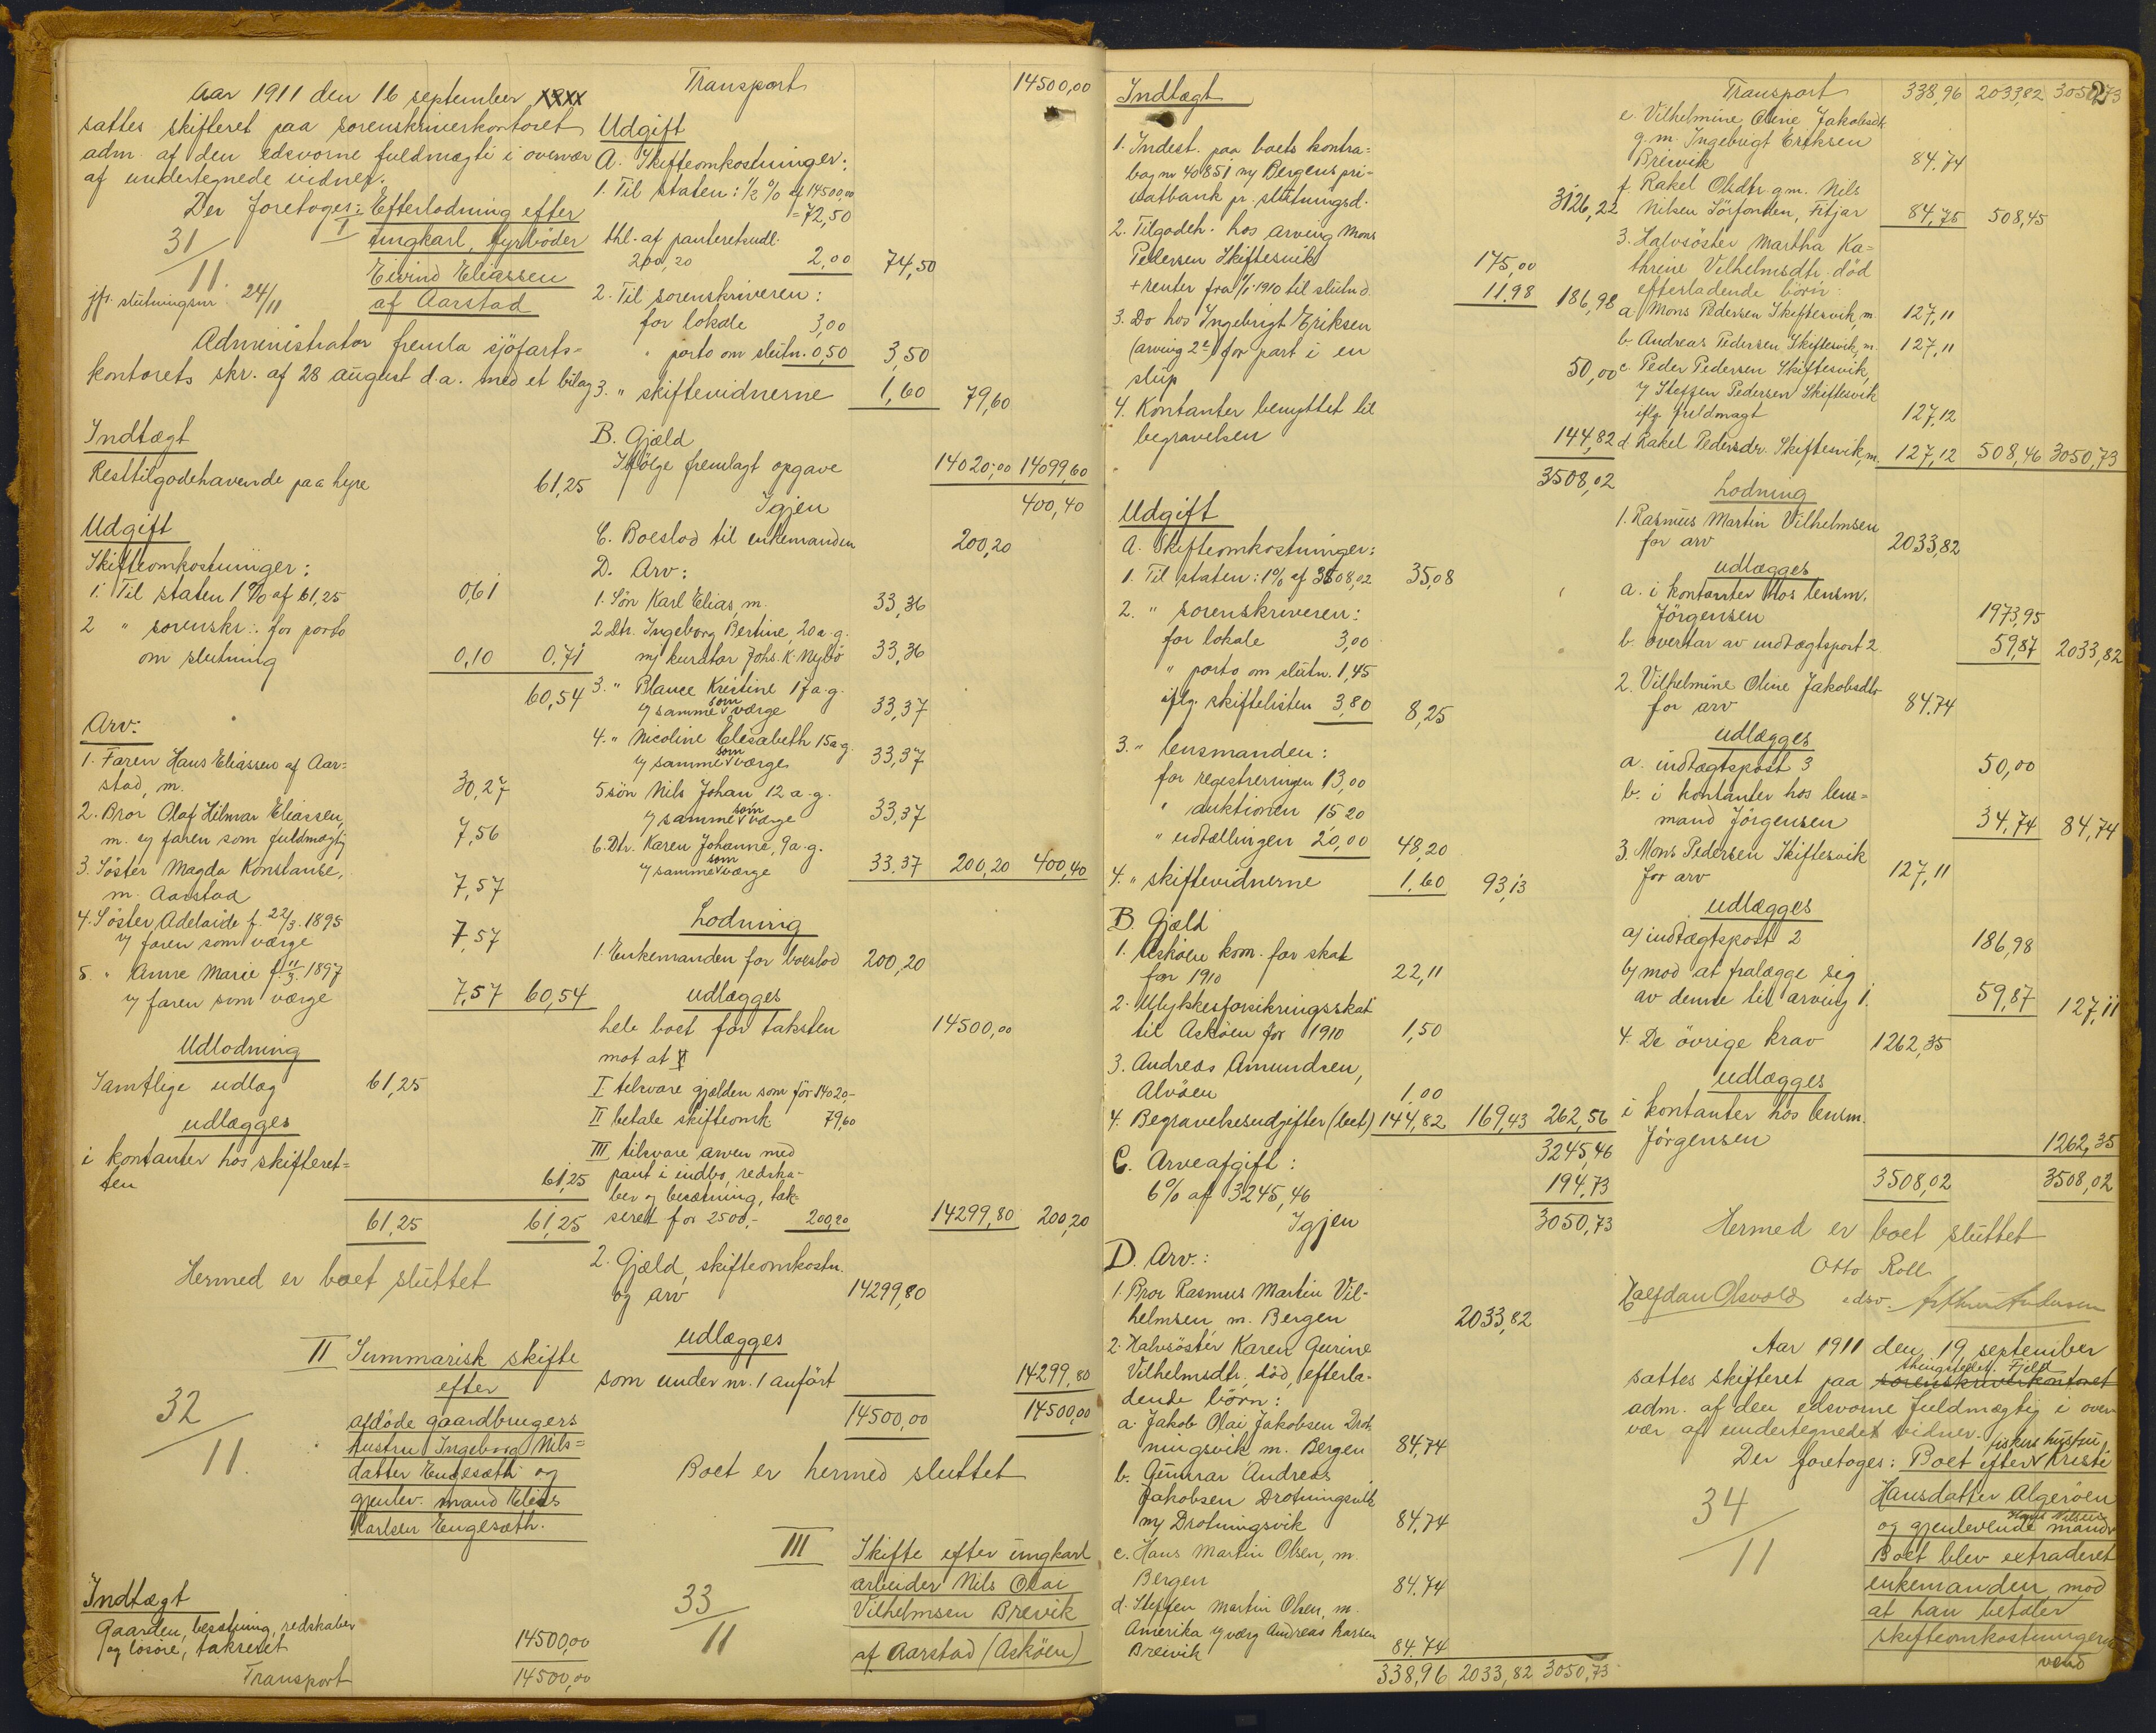 Aar 1911 den 16 september xxxx
sattes skifteret paa sorenskriverkontoret
adm. af den edsvorne fuldmægti i overvær
af undertegnede vidner.
Der foretoges: Efterlodning efter
I ungkarl, fyrböder
31/11. Eivind Eliassen
jfr. slutningsnr. 24/11 af Aarstad
Administrator fremla sjöfarts-
kontorets skr. af 28 august d.a. med et bilag
Indtægt
Resttilgodehavende paa hyre 61,25
Udgift
Skifteomkostninger:
1. Til staten 1% af 61,25 0,61
2 " sorenskr.: for porto
om slutning 0,10 0,71
60,54
Arv:
1. Faren Hans Eliassen af Aar=
stad, m. 30,27
2. Bror Olaf Hilmar Eliassen,
m. v/ faren som fuldmægtig 7,56
3. Söster Magda Konstanse,
m. Aarstad 7,57
4. Söster Adelaide f. 22/3. 1895
v/ faren som værge 7,57
5. " Anne Marie f. 11/3. 1897
v/ faren som værge 7,57 60,54
Udlodning
Samtlige udlæg 61,25
udlægges
i kontanter hos skifteret=
ten 61,25
61,25 61,25
Hermed er boet sluttet
II Summarisk skifte
efter
32/11. afdöde gaardbrugers
hustru Ingeborg Nils=
datter Engesæth og
gjenlev. mand Elias
Karlsen Engesæth.
Indtægt
Gaarden, besætning, redskaber
og lösöre, takseret 14500,00
Transport 14500,00
Transport 14500,00
Udgift
A. Skifteomkostninger:
1. Til staten: 1/2 % af 14500,00
= 72,50
thl. af panteretsudl.
200,20 2,00 74,50
2. Til sorenskriveren:
for lokale 3,00
" porto om slutn. 0,50 3,50
3. " skiftevidnerne 1,60 79,60
B. Gjæld
Ifölge fremlagt opgave 14020,00 14099,60
Igjen 400,40
C. Boeslod til enkemanden 200,20
D. Arv:
1. Sön Karl Elias, m. 33,36
2. Dtr. Ingeborg Bertine, 20 a. g.
m/ kurator Johs. K. Nybö 33,36
3. " Blance Kristine 17 a. g.
v/ samme som værge 33,37
4. " Nicoline Elesabeth 15 a g.
v/ samme som værge 33,37
5 sön Nils Johan 12 a. g.
v/ samme som værge 33,37
6. Dtr. Karen Johanne, 9 a. g.
v/ samme som værge 33,37 200,20 400,40
Lodning
1. Enkemanden for boeslod 200,20
udlægges
hele boet for taksten 14500,00
mot at
I tilsvare gjælden som för 14020,-
II betale skifteomk. 79,60
III tilsvare arven med
pant i indbo, redska-
ber og besætning, tak-
seret for 2500,- 200,20 14299,80 200,20
2. Gjæld, skifteomkostn.
og arv 14299,80
udlægges
som under nr. 1 anfört 14299,80
14500,00 14500,00
Boet er hermed sluttet
III Skifte efter ungkarl
33/11 arbeider Nils Olai
Vilhelmsen Brevik
af Aarstad (Asköen)
Indtægt
1. Indest. paa boets kontra=
bog nr 40851 m/ Bergens pri-
vatbank pr. slutningsd. 3126,22
2. Tilgodeh. hos arving Mons
Pedersen Skiftesvik 175,00
+ renter fra 11/1-1910 til slutnd. 11.98 186,98
3. Do hos Ingebrigt Eriksen
(arving 2e) for part i en
slup 50,00
4. Kontanter benyttet til
begravelsen 144,82
3508,02
Udgift
A. Skifteomkostninger:
1. Til staten: 1% af 3508,02 35,08
2. " sorenskriveren:
for lokale 3,00
" porto om slutn. 1,45
iflg. skiftelisten 3,80 8,25
3. " lensmanden:
for registreringen 13,00
" auktionen 15 20
" udtællingen 20,00 48,20
4. " skiftevidnerne 1,60 93,13
B. Gjæld
1. Asköen kom. for skat
for 1910 22,11
2. Ulykkesforsikringsskat
til Asköen for 1910 1,50
3. Andreas Amundsen,
Alvöen 1,00
4. Begravelsesudgifter (boet) 144,82 169,43 262,56
3245,46
C. Arveafgift:
6% af 3245,46 194,73
Igjen 3050,73
D. Arv.:
1. Bror Rasmus Martin Vil-
helmsen m. Bergen 2033,82
2. Halvsöster Karen Gurine
Vilhelmsdtr. död, efterla-
dende börn:
a. Jakob Olai Jakobsen Drot-
ningsvik m. Bergen 84,74
b. Gunnar Andreas
Jakobsen Drotningsvik
m/ Drotningsvik 84,74
c. Hans Martin Olsen, m.
Bergen 84,74
d. Steffen Martin Olsen, m.
Amerika v/ værg Andreas Larsen
Breivik 84.74
338,96 2033,82 3050,73
2
Transport 338,96 2033,82 3050,73
e. Vilhelmine Oline Jakobsdtr
g. m. Ingebrigt Eriksen
Breivik 84.74
f. Rakel Olsdtr g. m. Nils
Nilsen Sörfonden, Fitjar 84,75 508,45
3. Halvsöster Martha Ka=
thrine Vilhelmsdtr. död
efterladende börn:
a. Mons Pedersen Skiftesvik, m 127,11
b. Andreas Pedersen Skiftesvik, m. 127,11
c. Peder Pedersen Skiftesvik,
v/ Steffen Pedersen Skiftesvik
iflg. fuldmagt 127,12
d. Rakel Pedersdr. Skiftesvik, m. 127,12 508,46 3050,73
Lodning
1. Rasmus Martin Vilhelmsen
for arv 2033,82
udlægges
a. i kontanter hos lensm.
Jörgensen 1973,95
b. overtar av indtægtspost 2 59,87 2033,82
2. Vilhelmine Oline Jakobsdtr
for arv 84.74
udlægges
a. indtægtspost 3 50,00
b. i kontanter hos lens=
mand Jörgensen 34,74 84,74
3. Mons Pedersen Skiftesvik
for arv 127,11
udlægges
a/ indtægtspost 2 186,98
b/ mod at fralægge sig
av denne til arving 1. 59,87 127,11
4. De övrige krav 1262,35
udlægges
i kontanter hos lensm.
Jörgensen 1262,35
3508,02 3508,02
Hermed er boet sluttet
Otto Roll
Halfdan Olsvold edsv. Arthur Andersen
Aar 1911 den 19 september
sattes skifteret paa sorenskriverkontoret thingstedet Fjeld
adm. af den edsvorne fuldmægtig i over
vær af undertegnedet vidner.
Der foretoges: Boet efter fiskers hustru Kristi
34/11 Hansdatter Algeröen
og gjenlevende mand Hans Nilsen
Boet blev extraderet
enkemanden mod
at han betaler
skifteomkostningerne